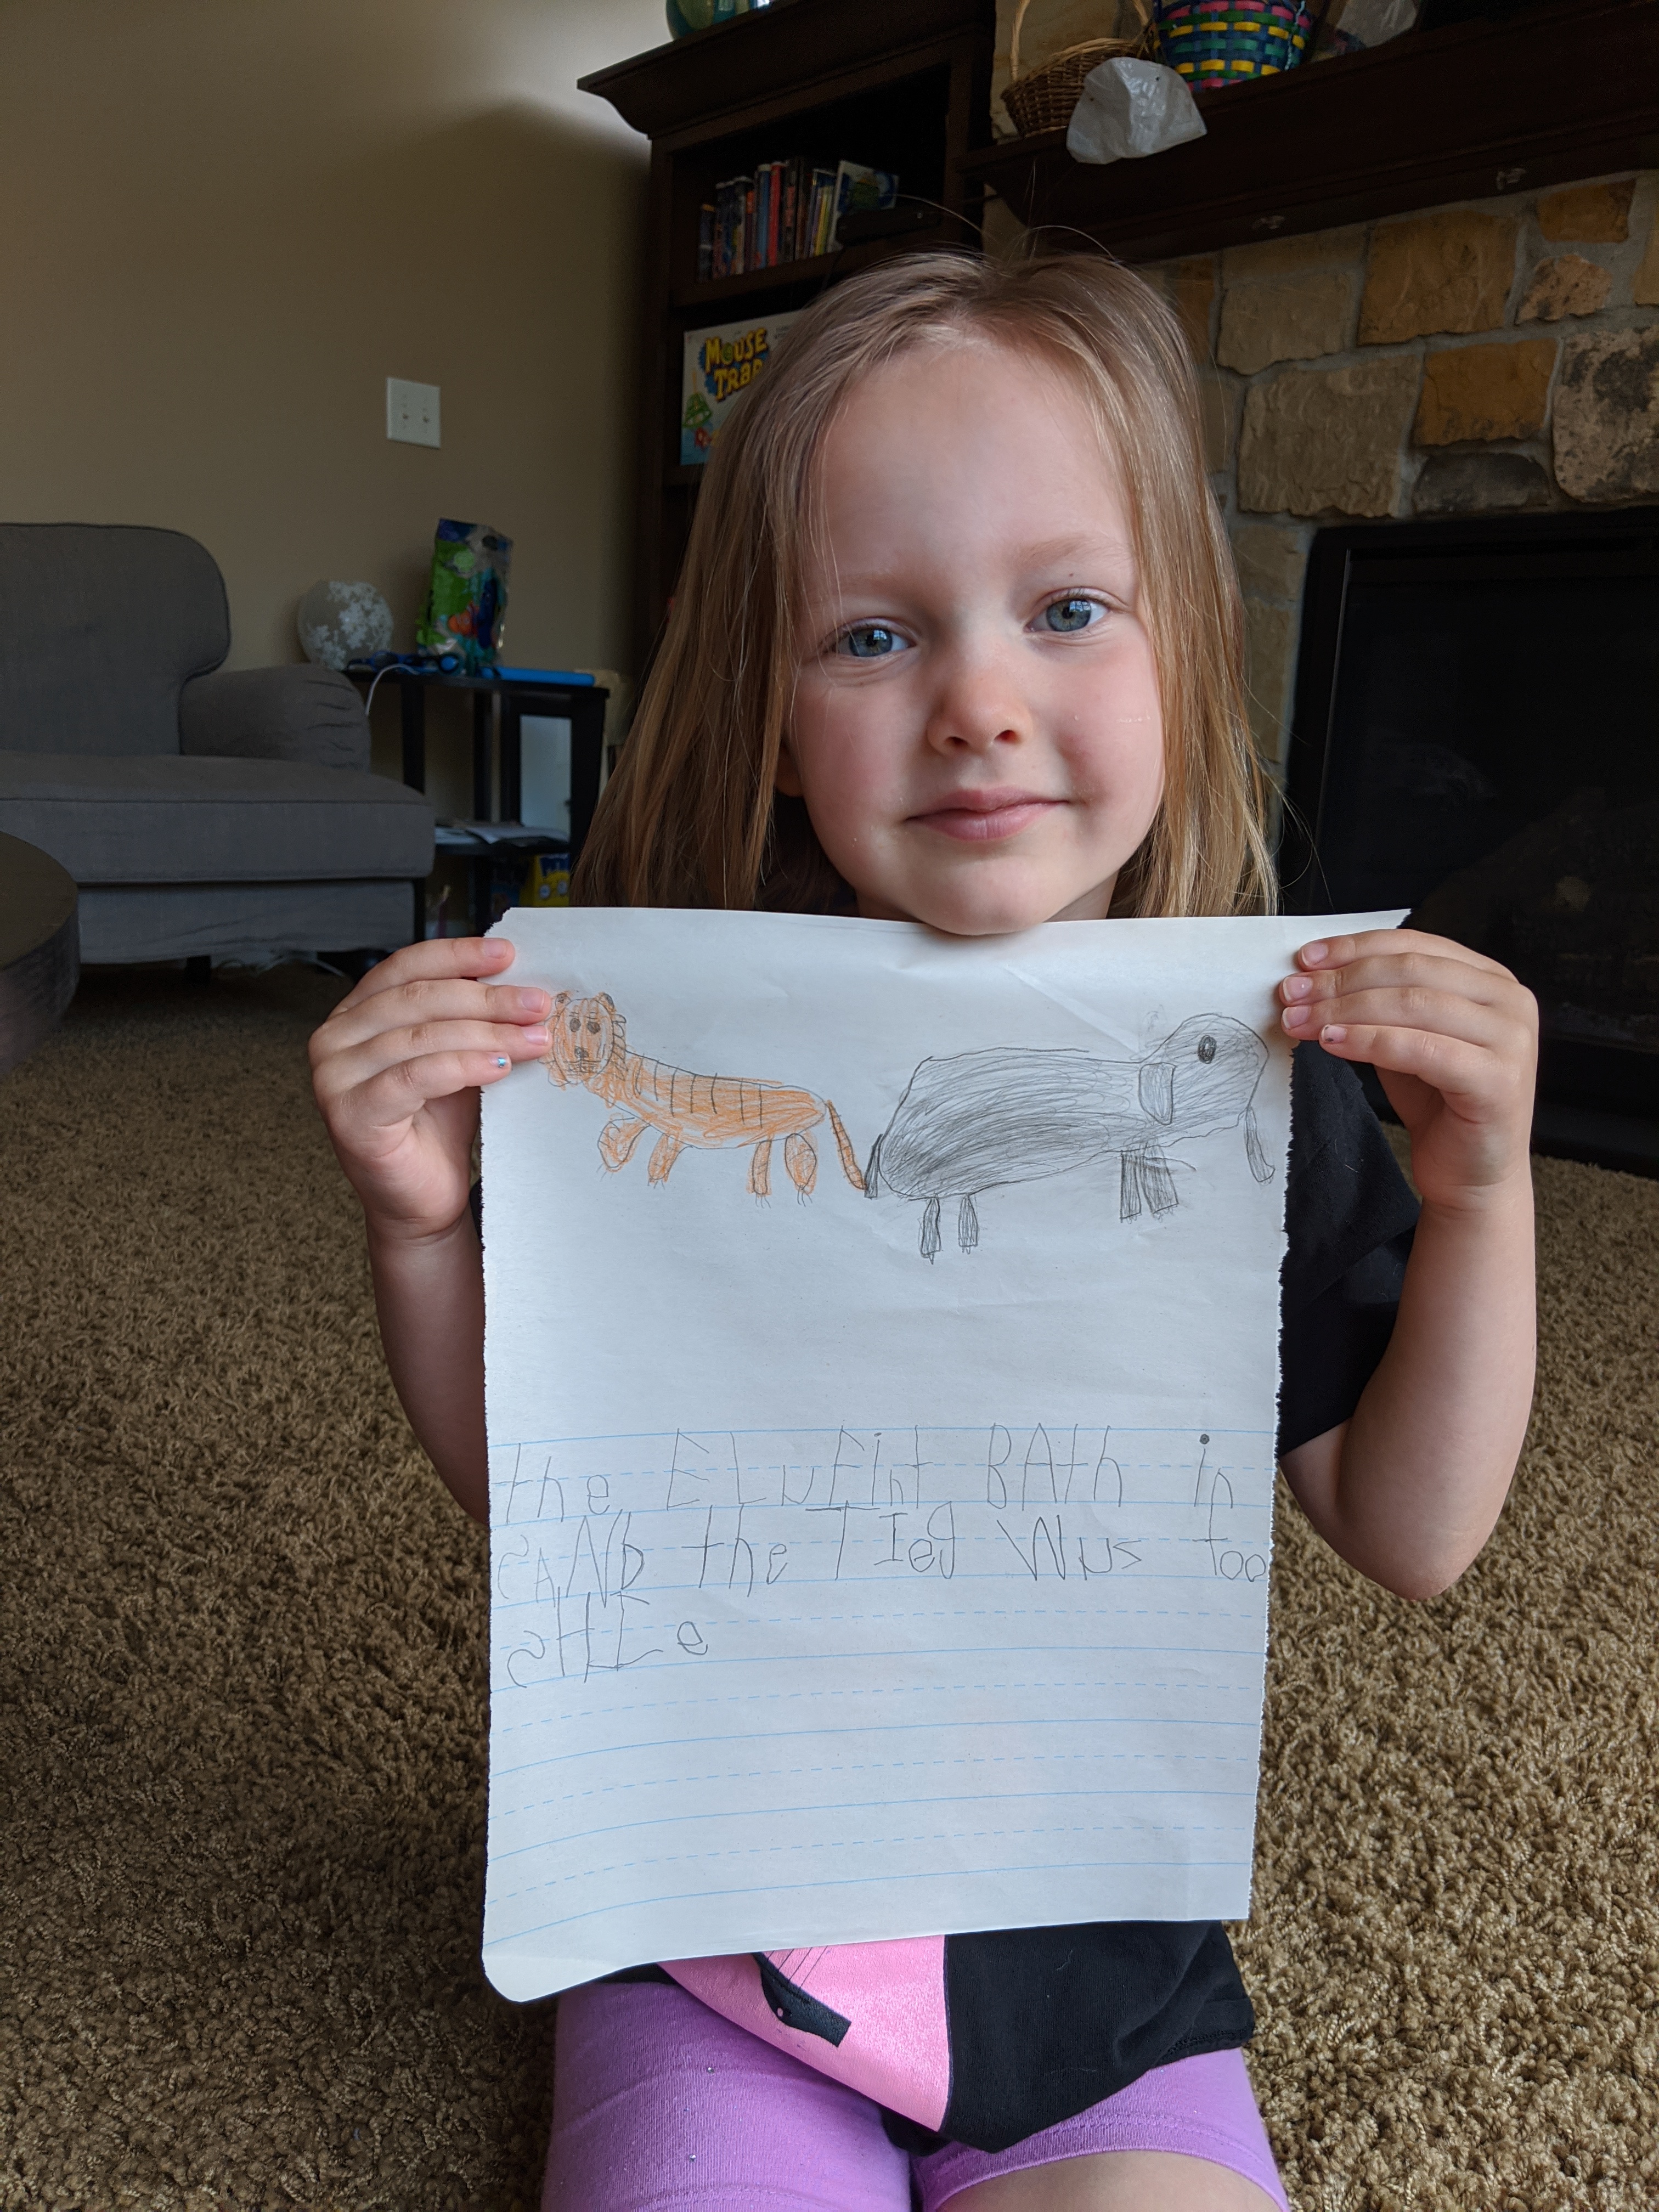 MOUSE
TRAP
the ELuFint BAth in
SAND the TIeg Wus too
SHEe